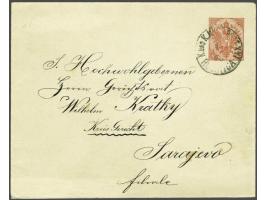 S. Hochwohlgeboren
Herrn Gerichts
Wilhelm Kratky
Kreis Gericht
Sarajevo
filiale